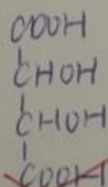 COOH
CHOH
CHOH
COOH